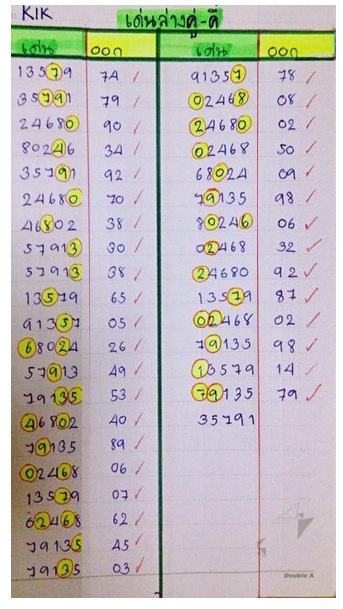 KIK
เด่นล่างคู่-คี่
เด่น ออก
13579 74
35791 79
24680 90
80246 34
35791 92
24680 70
46802 38
57913 30
57913 38
13579 65
91357 05
68024 26
57913 49
79135 53
46802 40
79135 89
02468 06
13579 07
02468 62
79135 45
79135 03
เด่น ออก
91357 78
02468 08
24680 02
02468 50
68024 09
79135 98
80246 06
02468 32
24680 92
13579 87
02468 02
79135 98
13579 14
79135 79
35791
Double A